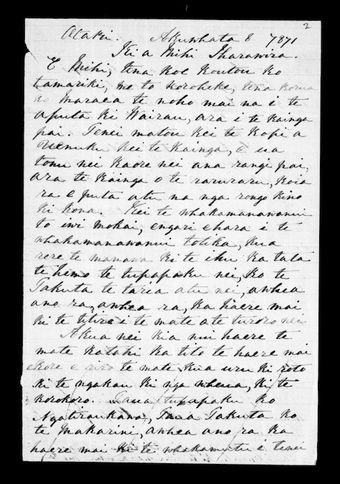 2
Otaki. Akuhata 8 1871
Ki a Mihi Tharawira.
E Mihi, tena koe koutou ko
tamariki, me to koroheke, tena koutou
maraea te noho mai na i te
aputa ki Wairau, ara i te kainga
pai. Tenei matou kei te Kopi a
Uenuku kei te kainga, e ua
tonu nei kaore nei ana rangi pai,
ara te kainga o te raruraru, koia
ra e puta atu na nga rongo kino
ki kona. Kei te whakamanawanui
to iwi mokai, engari ehara i te
whakamanawanui totika, kua
rere te manawa ki te ihu ka tata
te hemo te tupapaku nei, ko te
Takuta te taria atu nei, anhea
ano ra, anhea ra, ka haere mai
ki te titiro i te mate o te turoro nei.
Akua nei kia nui haere te
mate katahi ka tito te haere mai
te mate kua uru ki roto
ki te ngakau ki nga wheua, ki te
korokoro. Taua tupapaku ko
Ngatiraukawa, Taua Takuta ko
te Makarini, anhea ano ra ka
haere mai ki te whakamatau i tenei